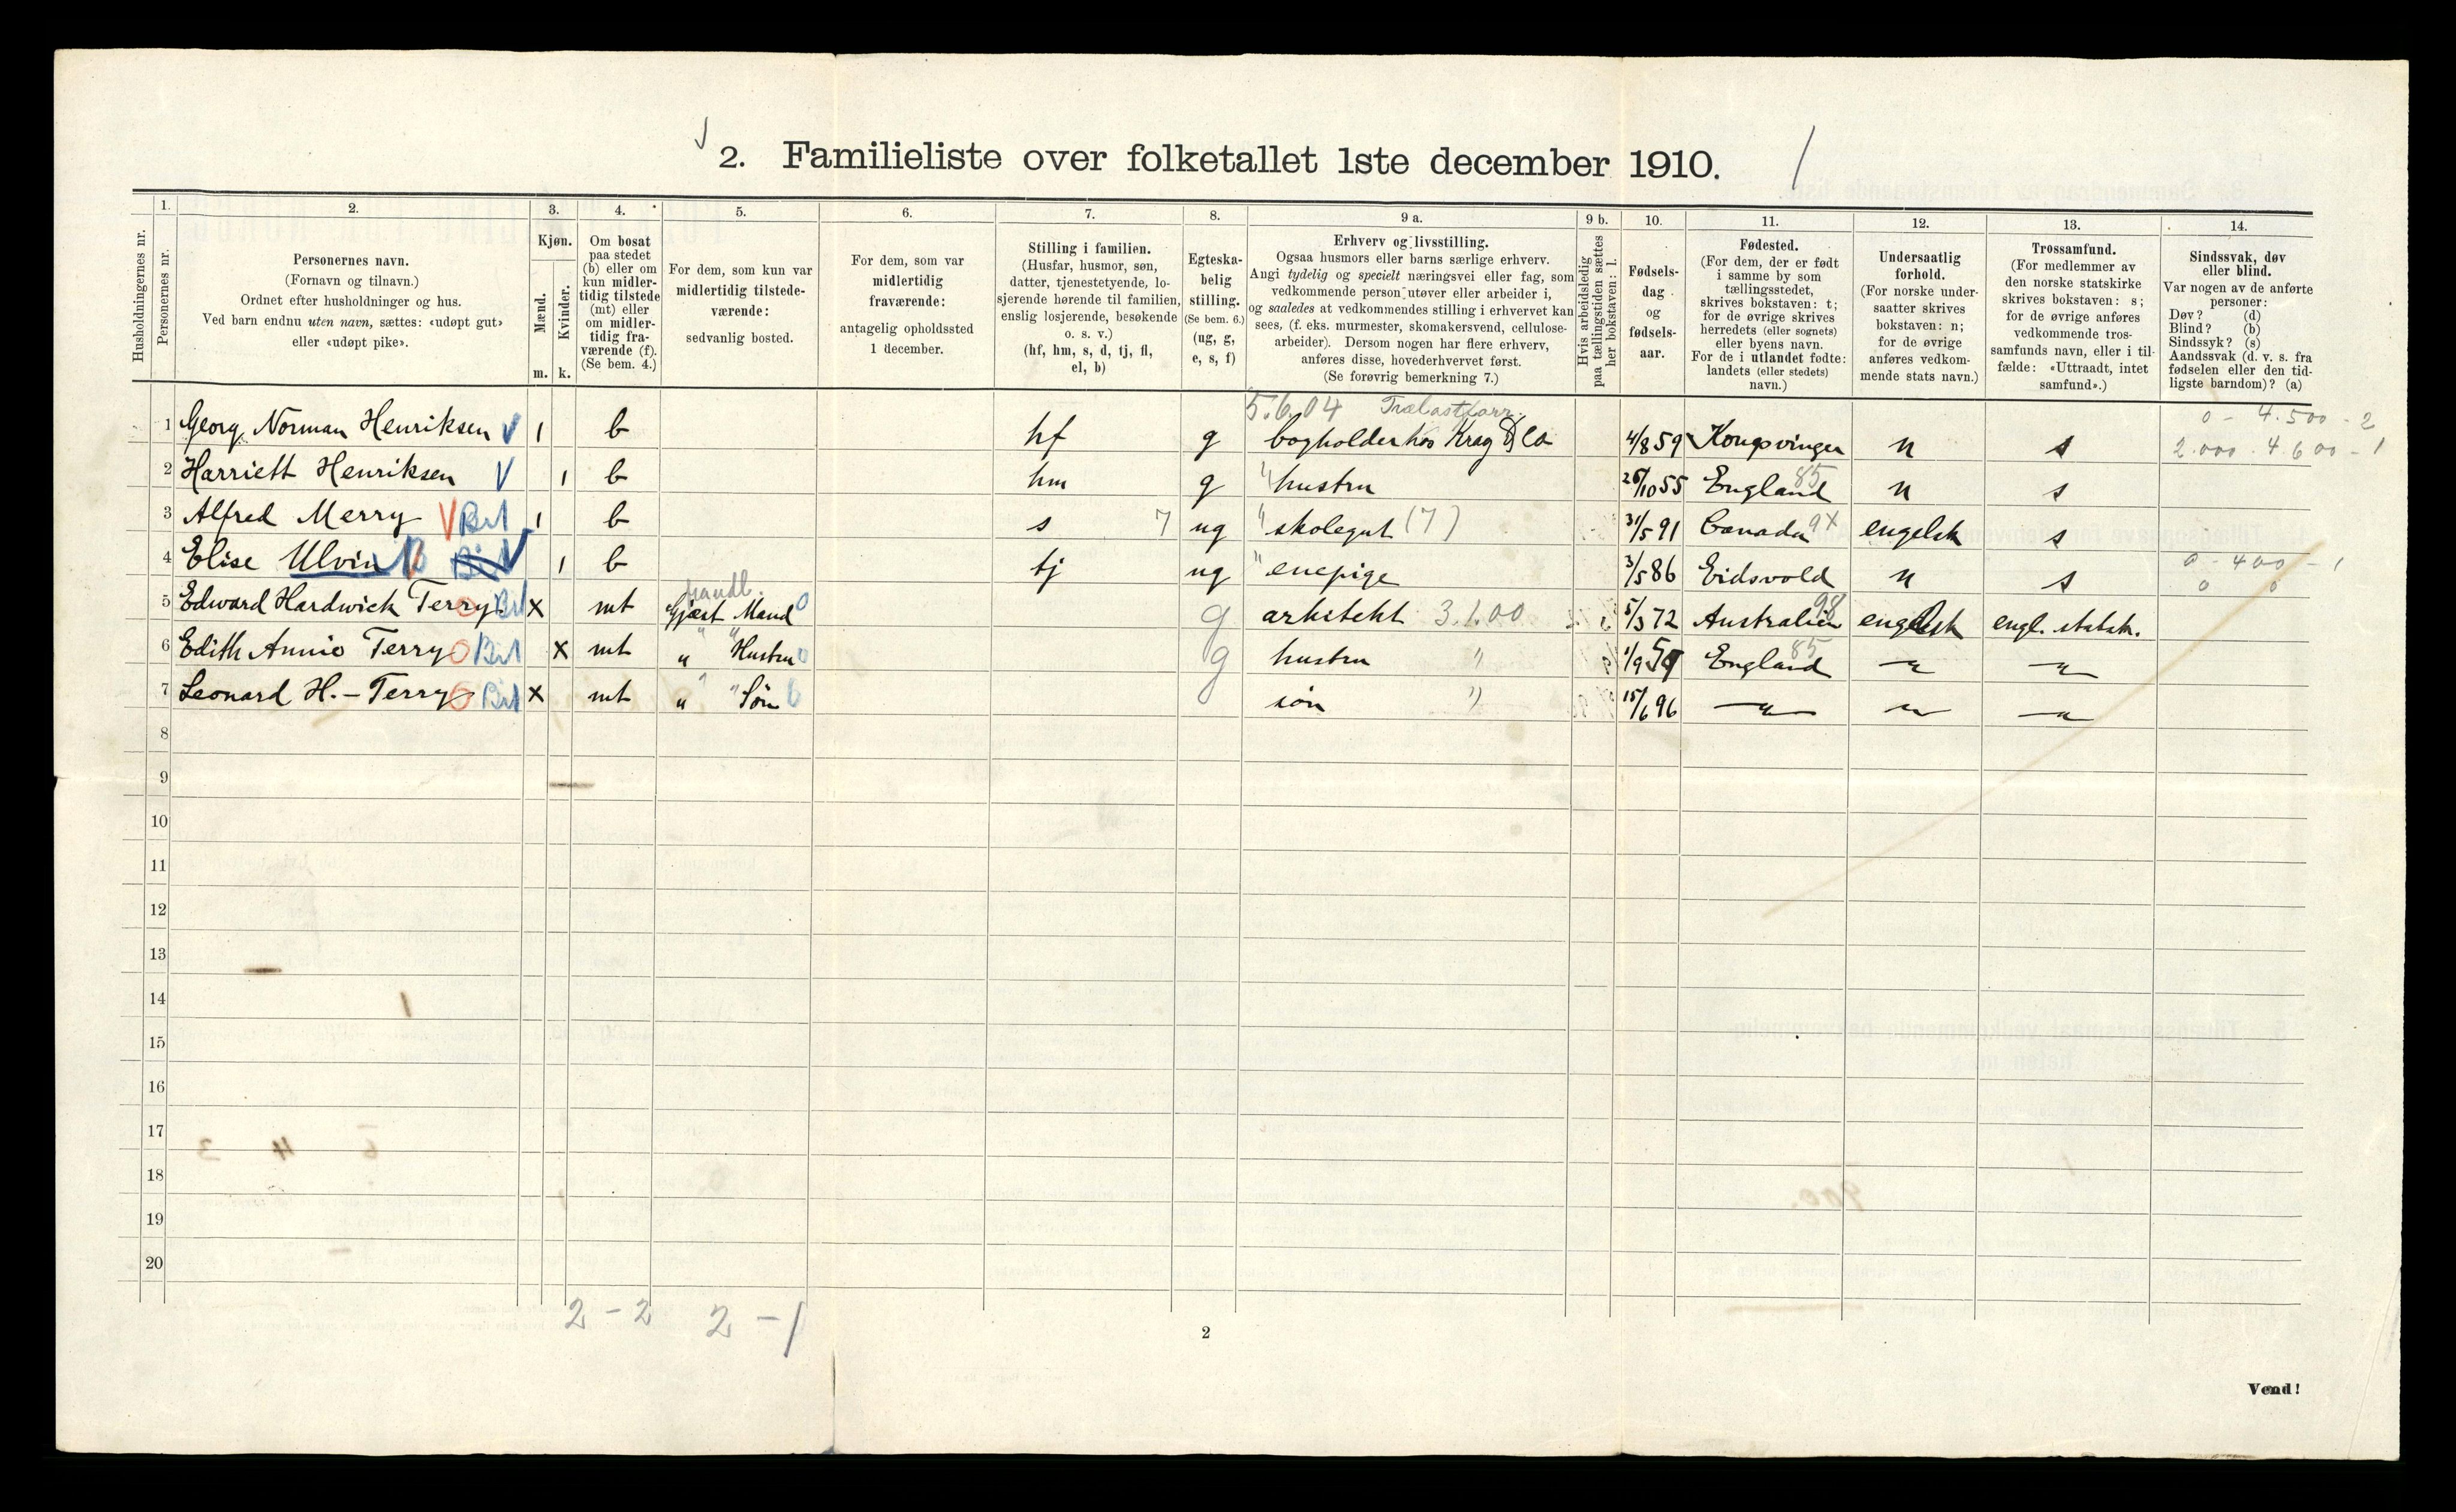 2. Familieliste over folketallet 1ste december 1910.
Husholdningernes nr.
1.
Personernes nr.
2.
Personernes navn.
(Fornavn og tilnavn.)
Ordnet efter husholdninger og hus.
Ved barn endnu uten navn, sættes: «udøpt gut»
eller «udøpt pike».
3.
Kjøn.
Mænd.
Kvinder.
m. k.
4.
Om bosat
paa stedet
(b) eller om
kun midler-
tidig tilstede
(mt) eller
om midler-
tidig fra-
værende (f).
(Se bem. 4.)
5.
For dem, som kun var
midlertidig tilstede-
værende:
sedvanlig bosted.
6.
For dem, som var
midlertidig
fraværende:
antagelig opholdssted
1 december.
7.
Stilling i familien.
(Husfar, husmor, søn,
datter, tjenestetyende, lo-
sjerende hørende til familien,
enslig losjerende, besøkende
o. s. v.)
(hf, hm, s, d, tj, fl,
el, b)
8.
Egteska-
belig
stilling.
(Se bem. 6.)
(ug, g,
e, s, f)
9 a.
Erhverv og livsstilling.
Ogsaa husmors eller barns særlige erhverv.
Angi tydelig og specielt næringsvei eller fag, som
vedkommende person utøver eller arbeider i,
og saaledes at vedkommendes stilling i erhvervet kan
sees, (f. eks. murmester, skomakersvend, cellulose-
arbeider). Dersom nogen har flere erhverv,
anføres disse, hovederhvervet først.
(Se forøvrig bemerkning 7.)
9 b.
Hvis arbeidsledig
paa tællingstiden sættes
her bokstaven: l.
10.
Fødsels-
dag
og
fødsels-
aar.
11.
Fødested.
(For dem, der er født
i samme by som
tællingsstedet,
skrives bokstaven: t;
for de øvrige skrives
herredets (eller sognets)
eller byens navn.
For de i utlandet fødte:
landets (eller stedets)
navn.)
12.
Undersaatlig
forhold.
(For norske under-
saatter skrives
bokstaven: n;
for de øvrige
anføres vedkom-
mende stats navn.)
13.
Trossamfund.
(For medlemmer av
den norske statskirke
skrives bokstaven: s;
for de øvrige anføres
vedkommende tros-
samfunds navn, eller i til-
fælde: «Uttraadt, intet
samfund».)
14.
Sindssvak, døv
eller blind.
Var nogen av de anførte
personer:
Døv? (d)
Blind? (b)
Sindssyk? (s)
Aandssvak (d. v. s. fra
fødselen eller den tid-
ligste barndom)? (a)
5.6.04 0 - 4.500 - 2
1 Georg Norman Henriksen V 1 b hf g bogholder hos Krag & Co 4/8 59 Kongsvinger n s 2.000 - 4.600 - 1
2 Harriett Henriksen V 1 b hm g " hustru 26/10 55 England 85 n s
3 Alfred Merry V 1 b s 7 ug " skolegut (7) 31/5 91 Canada 9x engelsk s
4 Elise Ulvin V 1 b tj ug " enepige 3/5 86 Eidsvold n s 0 - 400 - 1
0 0
5 Edward Hardwick Terry x mt Gjæst Mand 0 g arkitekt 3.1.00 5/3 72 Australien 98 engelsk engl. statsk.
6 Edith Annie Terry x mt " Hustru 0 g hustru " 1/9 England 85 " "
7 Leonard H. - Terry x mt " Søn 0 søn " 15/6 96 " " "
8
9
10
11
12
13
14
15
16
17
18
19
20
2 - 2 2 - 1
2
Vend!